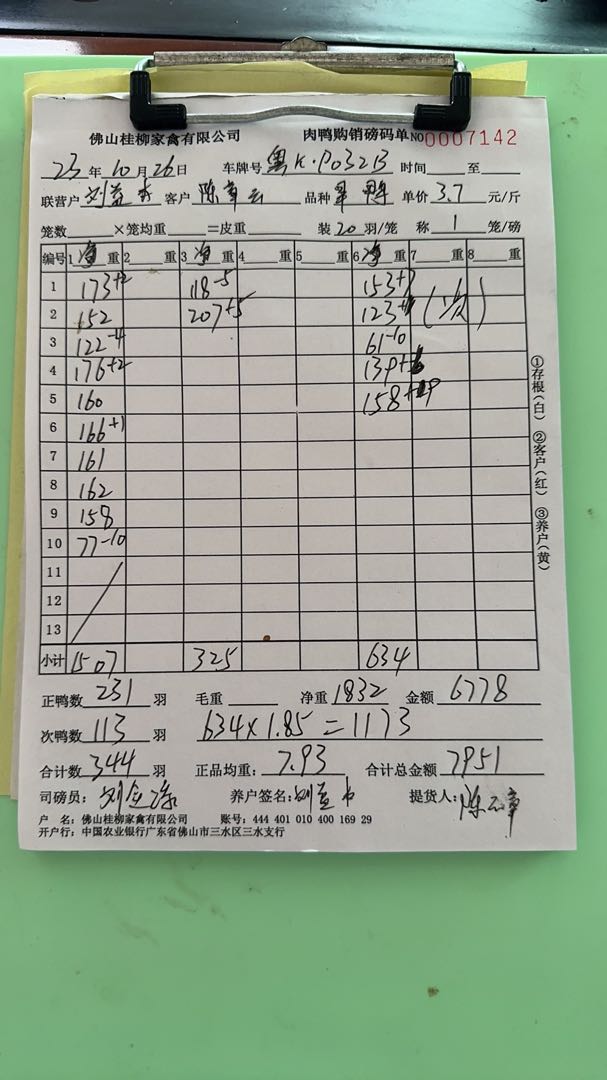 佛山桂柳家禽有限公司 肉鸭购销磅码单 NO 0007142
23 年 10 月 26 日 车牌号 粤K·P032B 时间 至
联营户 客户 品种 单价 3.7 元/斤
笼数 ×笼均重 =皮重 装 20 羽/笼 称 1 笼/磅
编号 1 净 重 2 重 3 净 重 4 重 5 重 6 净 重 7 重 8 重
1 173+2 118-5 153+7
2 152 207+5 123 (次)
3 122-4 61-10
4 176+2 139
5 160 158
6 166+1
7 161
8 162
9 158
10 77-10
11
12
13
小计 1507 325 634
正鸭数 231 羽 毛重 净重 1832 金额 6778
次鸭数 113 羽 634×1.85=1173
合计数 344 羽 正品均重: 7.93 合计总金额 7951
司磅员: 养户签名: 提货人:
户 名: 佛山桂柳家禽有限公司 账号: 444 401 010 400 169 29
开户行: 中国农业银行广东省佛山市三水区三水支行
①存根(白) ②客户(红) ③养户(黄)